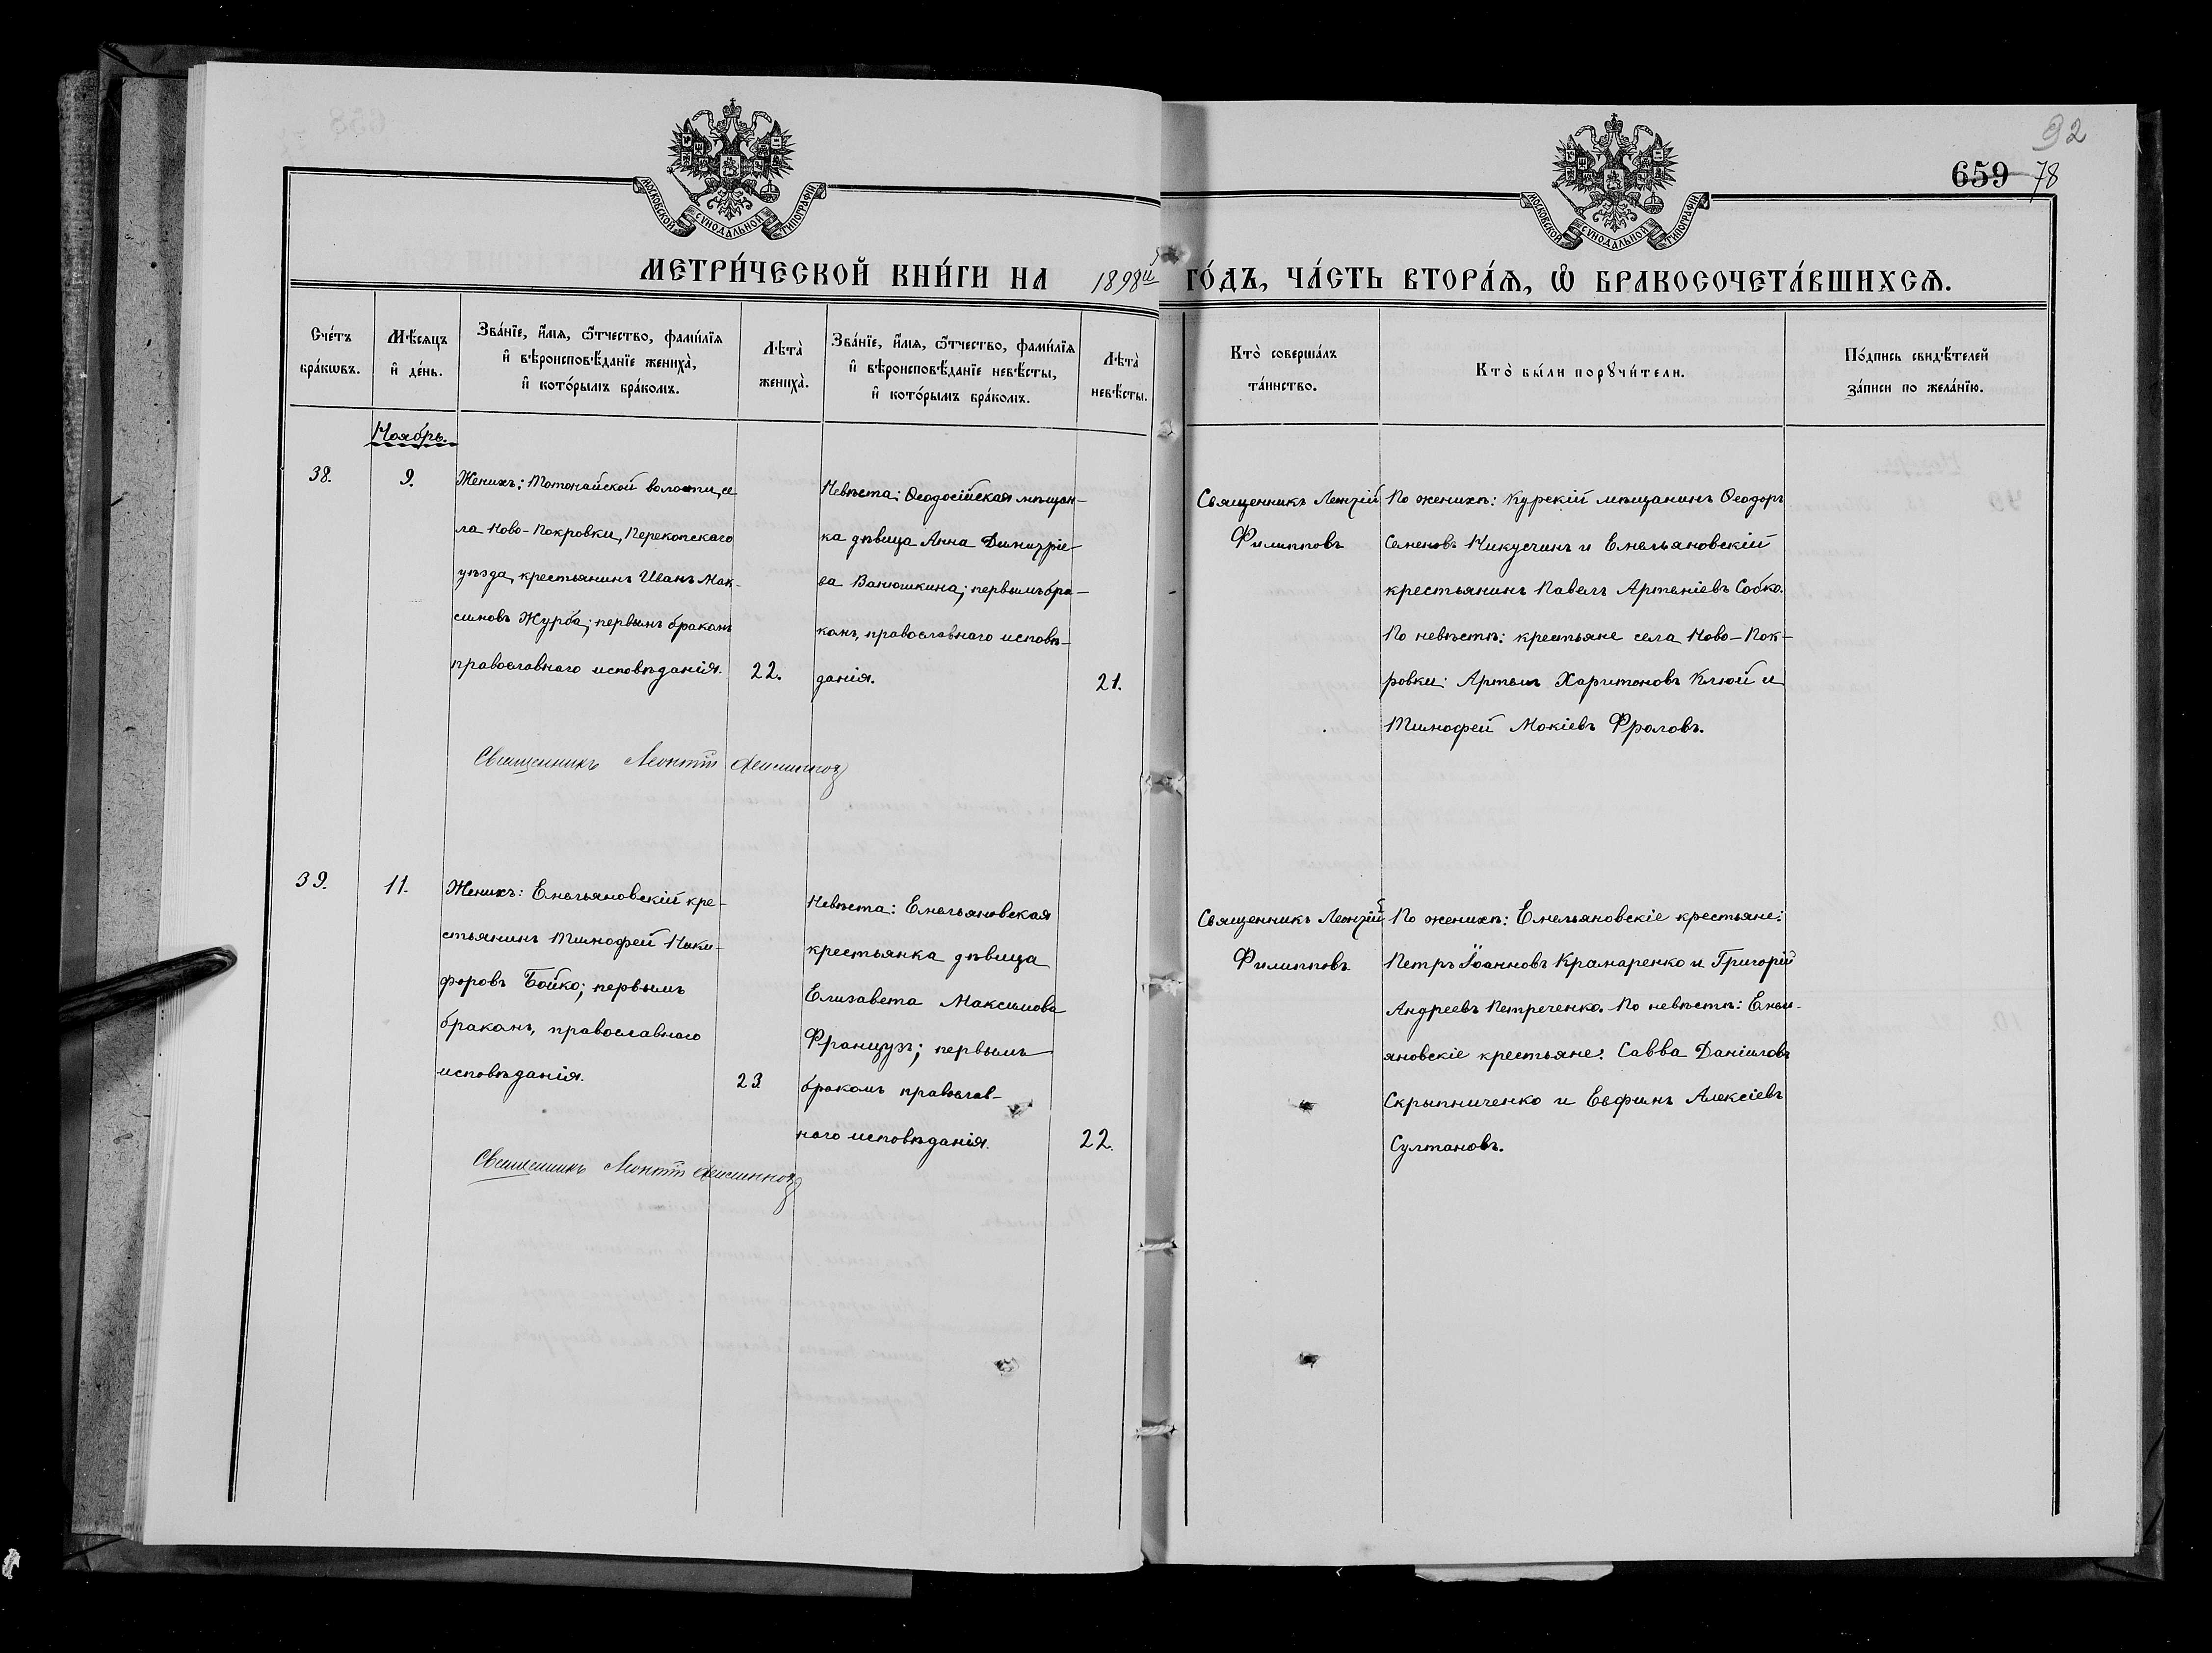 92
659 78
МОСКОВСКОЙ СѴНОДАЛЬНОЙ ТИПОГРАФІИ
МОСКОВСКОЙ СѴНОДАЛЬНОЙ ТИПОГРАФІИ
МЕТРИ́ЧЕСКОЙ КНИ́ГИ НА 1898й ГО́ДЪ, ЧА́СТЬ ВТОРА́Ѧ, Ѽ БРАКОСОЧЕТА́ВШИХСѦ.
Сче́тъ
бра́кѡвъ.
Мѣ́сѧцъ
и҆ де́нь.
Зва́нїе, и҆́мѧ, ѻ҆́тчество, фами́лїѧ
и҆ вѣроисповѣ́данїе жениха̀,
и҆ кото́рымъ бра́комъ.
Лѣта̀
жениха̀.
Зва́нїе, и҆́мѧ, ѻ҆́тчество, фами́лїѧ
и҆ вѣроисповѣ́данїе невѣ́сты,
и҆ кото́рымъ бра́комъ.
Лѣта̀
невѣ́сты.
Кто̀ соверша́лъ
та́инство.
Кто̀ бы́ли порꙋчи́тели.
По́дпись свидѣ́телей
за́писи по жела́нїю.
Ноябрь.
38.
9.
Женихъ: Тотонайской волости, се
ла Ново-Покровки, Перекопскаго
уѣзда, крестьянинъ Иванъ Мак-
симовъ Журба; первымъ бракомъ
православнаго исповѣданія.
22.
Невѣста: Ѳеодосійская мѣщан-
ка дѣвица Анна Димитріе-
ва Ванюшкина; первымъ бра-
комъ, православнаго исповѣ-
данія.
21.
Священникъ Леонтій
Филипповъ
По женихѣ: Курскій мѣщанинъ Ѳеодоръ
Семеновъ Никусчинъ и Емельяновскій
крестьянинъ Павелъ Артеміевъ Собко.
По невѣстѣ: крестьяне села Ново-Пок-
ровки: Артемъ Харитоновъ Клюй и
Тимофей Мокіевъ Фроловъ.
Священникъ Леонтій Филипповъ
39.
11.
Женихъ: Емельяновскій кре-
стьянинъ Тимофей Ники-
форовъ Бойко; первымъ
бракомъ, православнаго
исповѣданія.
23.
Невѣста: Емельяновская
крестьянка дѣвица
Елизавета Максимова
Французъ; первымъ
бракомъ православ-
наго исповѣданія.
22.
Священникъ Леонтій
Филипповъ
По женихѣ: Емельяновскіе крестьяне:
Петръ Іоанновъ Крамаренко и Григорій
Андреевъ Петреченко. По невѣстѣ: Емел-
яновскіе крестьяне: Савва Даніиловъ
Скрыпниченко и Евфимъ Алексіевъ
Султановъ.
Священникъ Леонтій Филипповъ